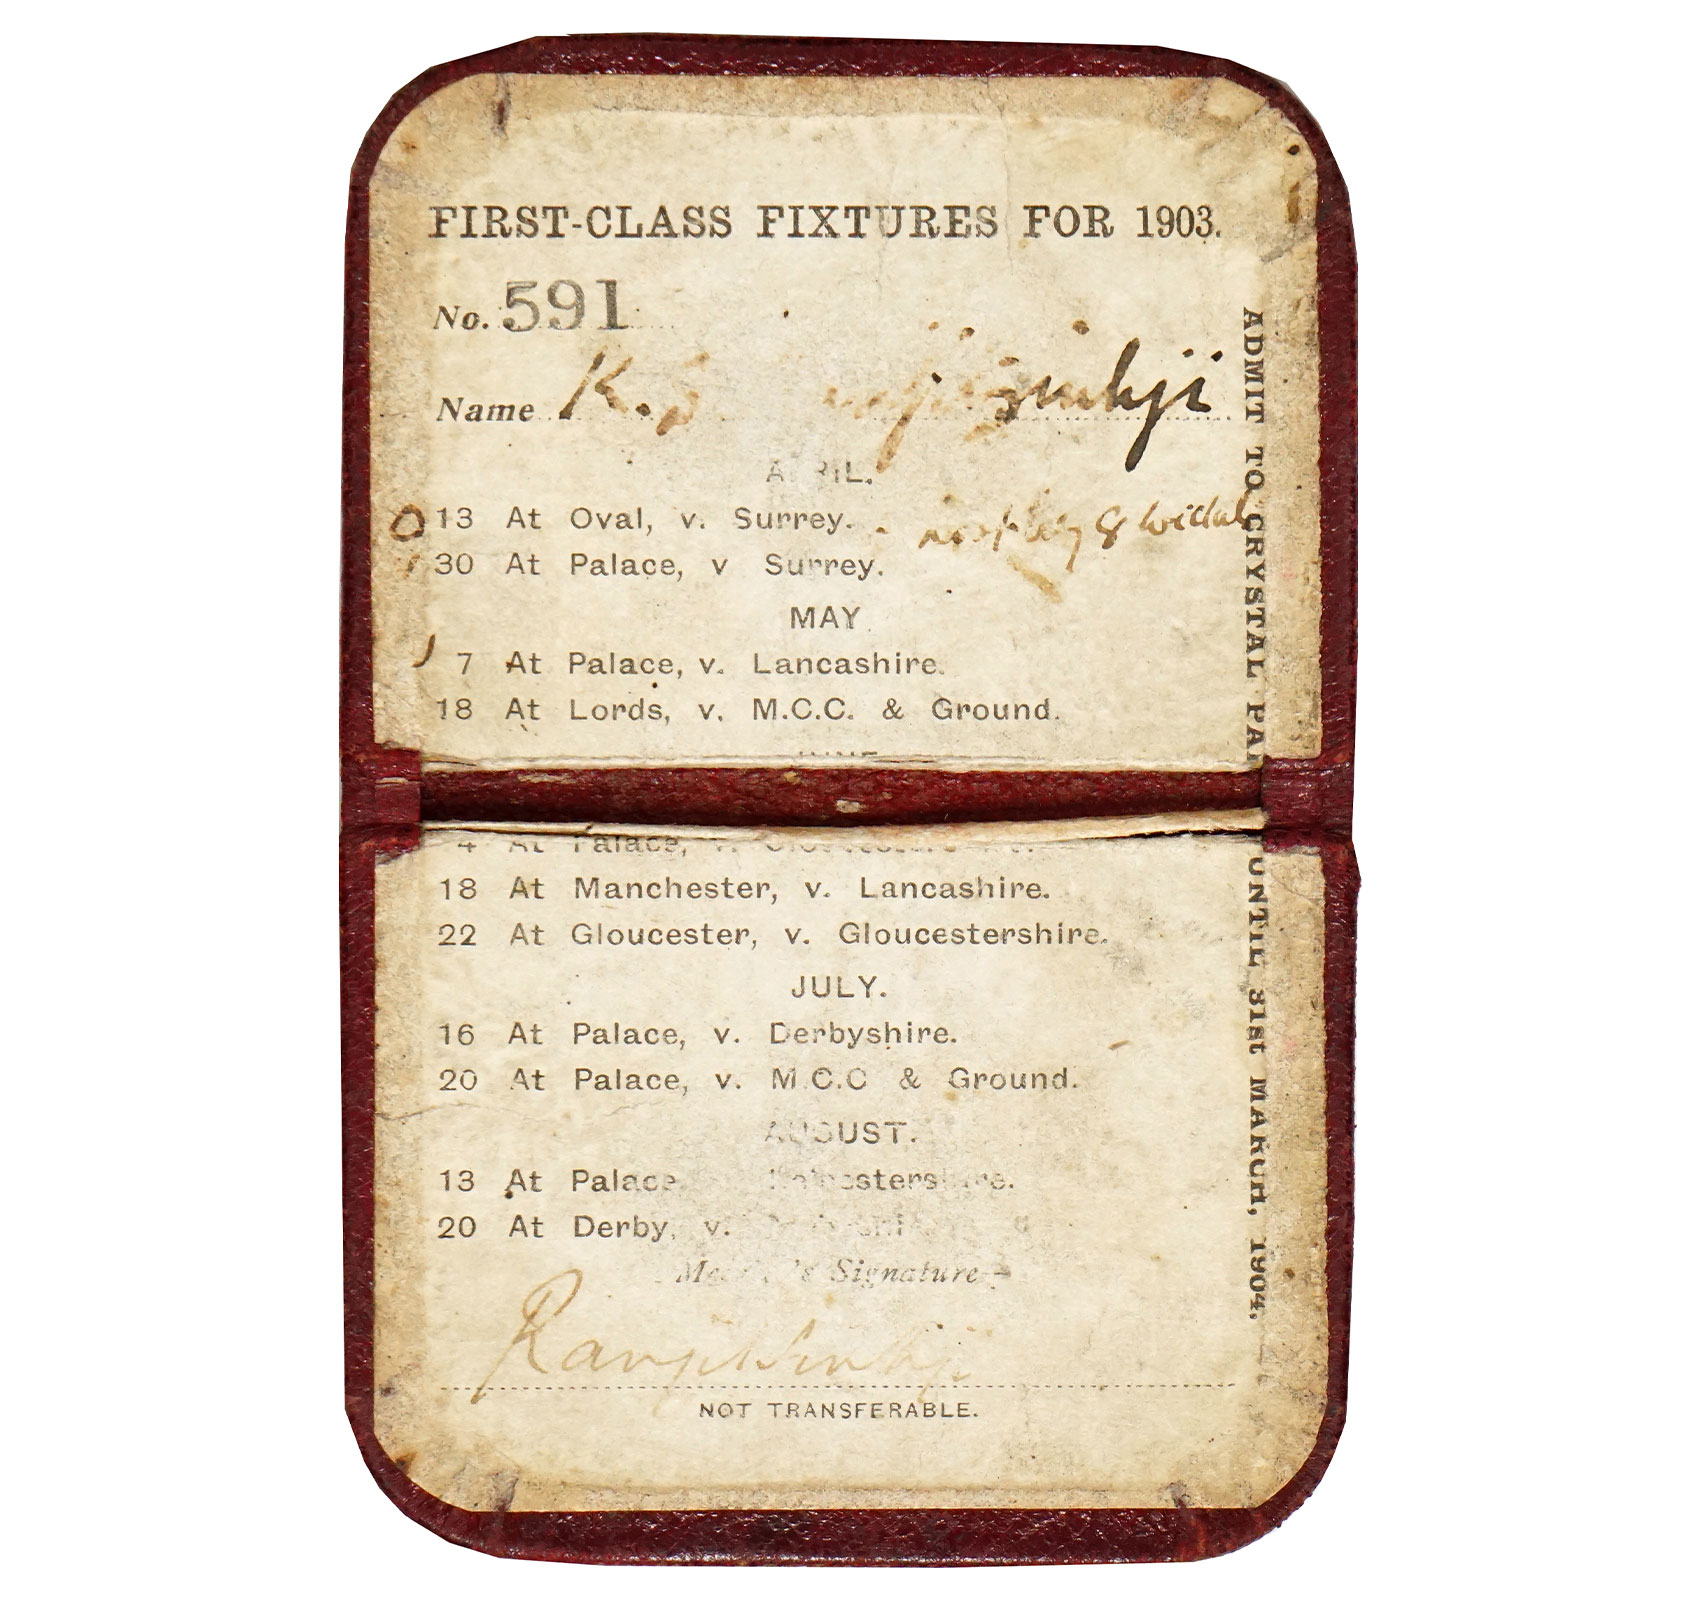 FIRST-CLASS FIXTURES FOR 1903.
No. 591
Name K. S.
APRIL.
13 At Oval, v. Surrey.
30 At Palace, v Surrey.
MAY
7 At Palace, v. Lancashire.
18 At Lords, v. M.C.C. & Ground.
JUNE
4 At Palace, v.
18 At Manchester, v. Lancashire.
22 At Gloucester, v. Gloucestershire.
JULY.
16 At Palace, v. Derbyshire.
20 At Palace, v. M.C.C & Ground.
AUGUST.
13 At Palace
20 At Derby, v.
Signature
Ranjitsinhji
NOT TRANSFERABLE.
ADMIT TO CRYSTAL UNTIL 31st MARCH, 1904,